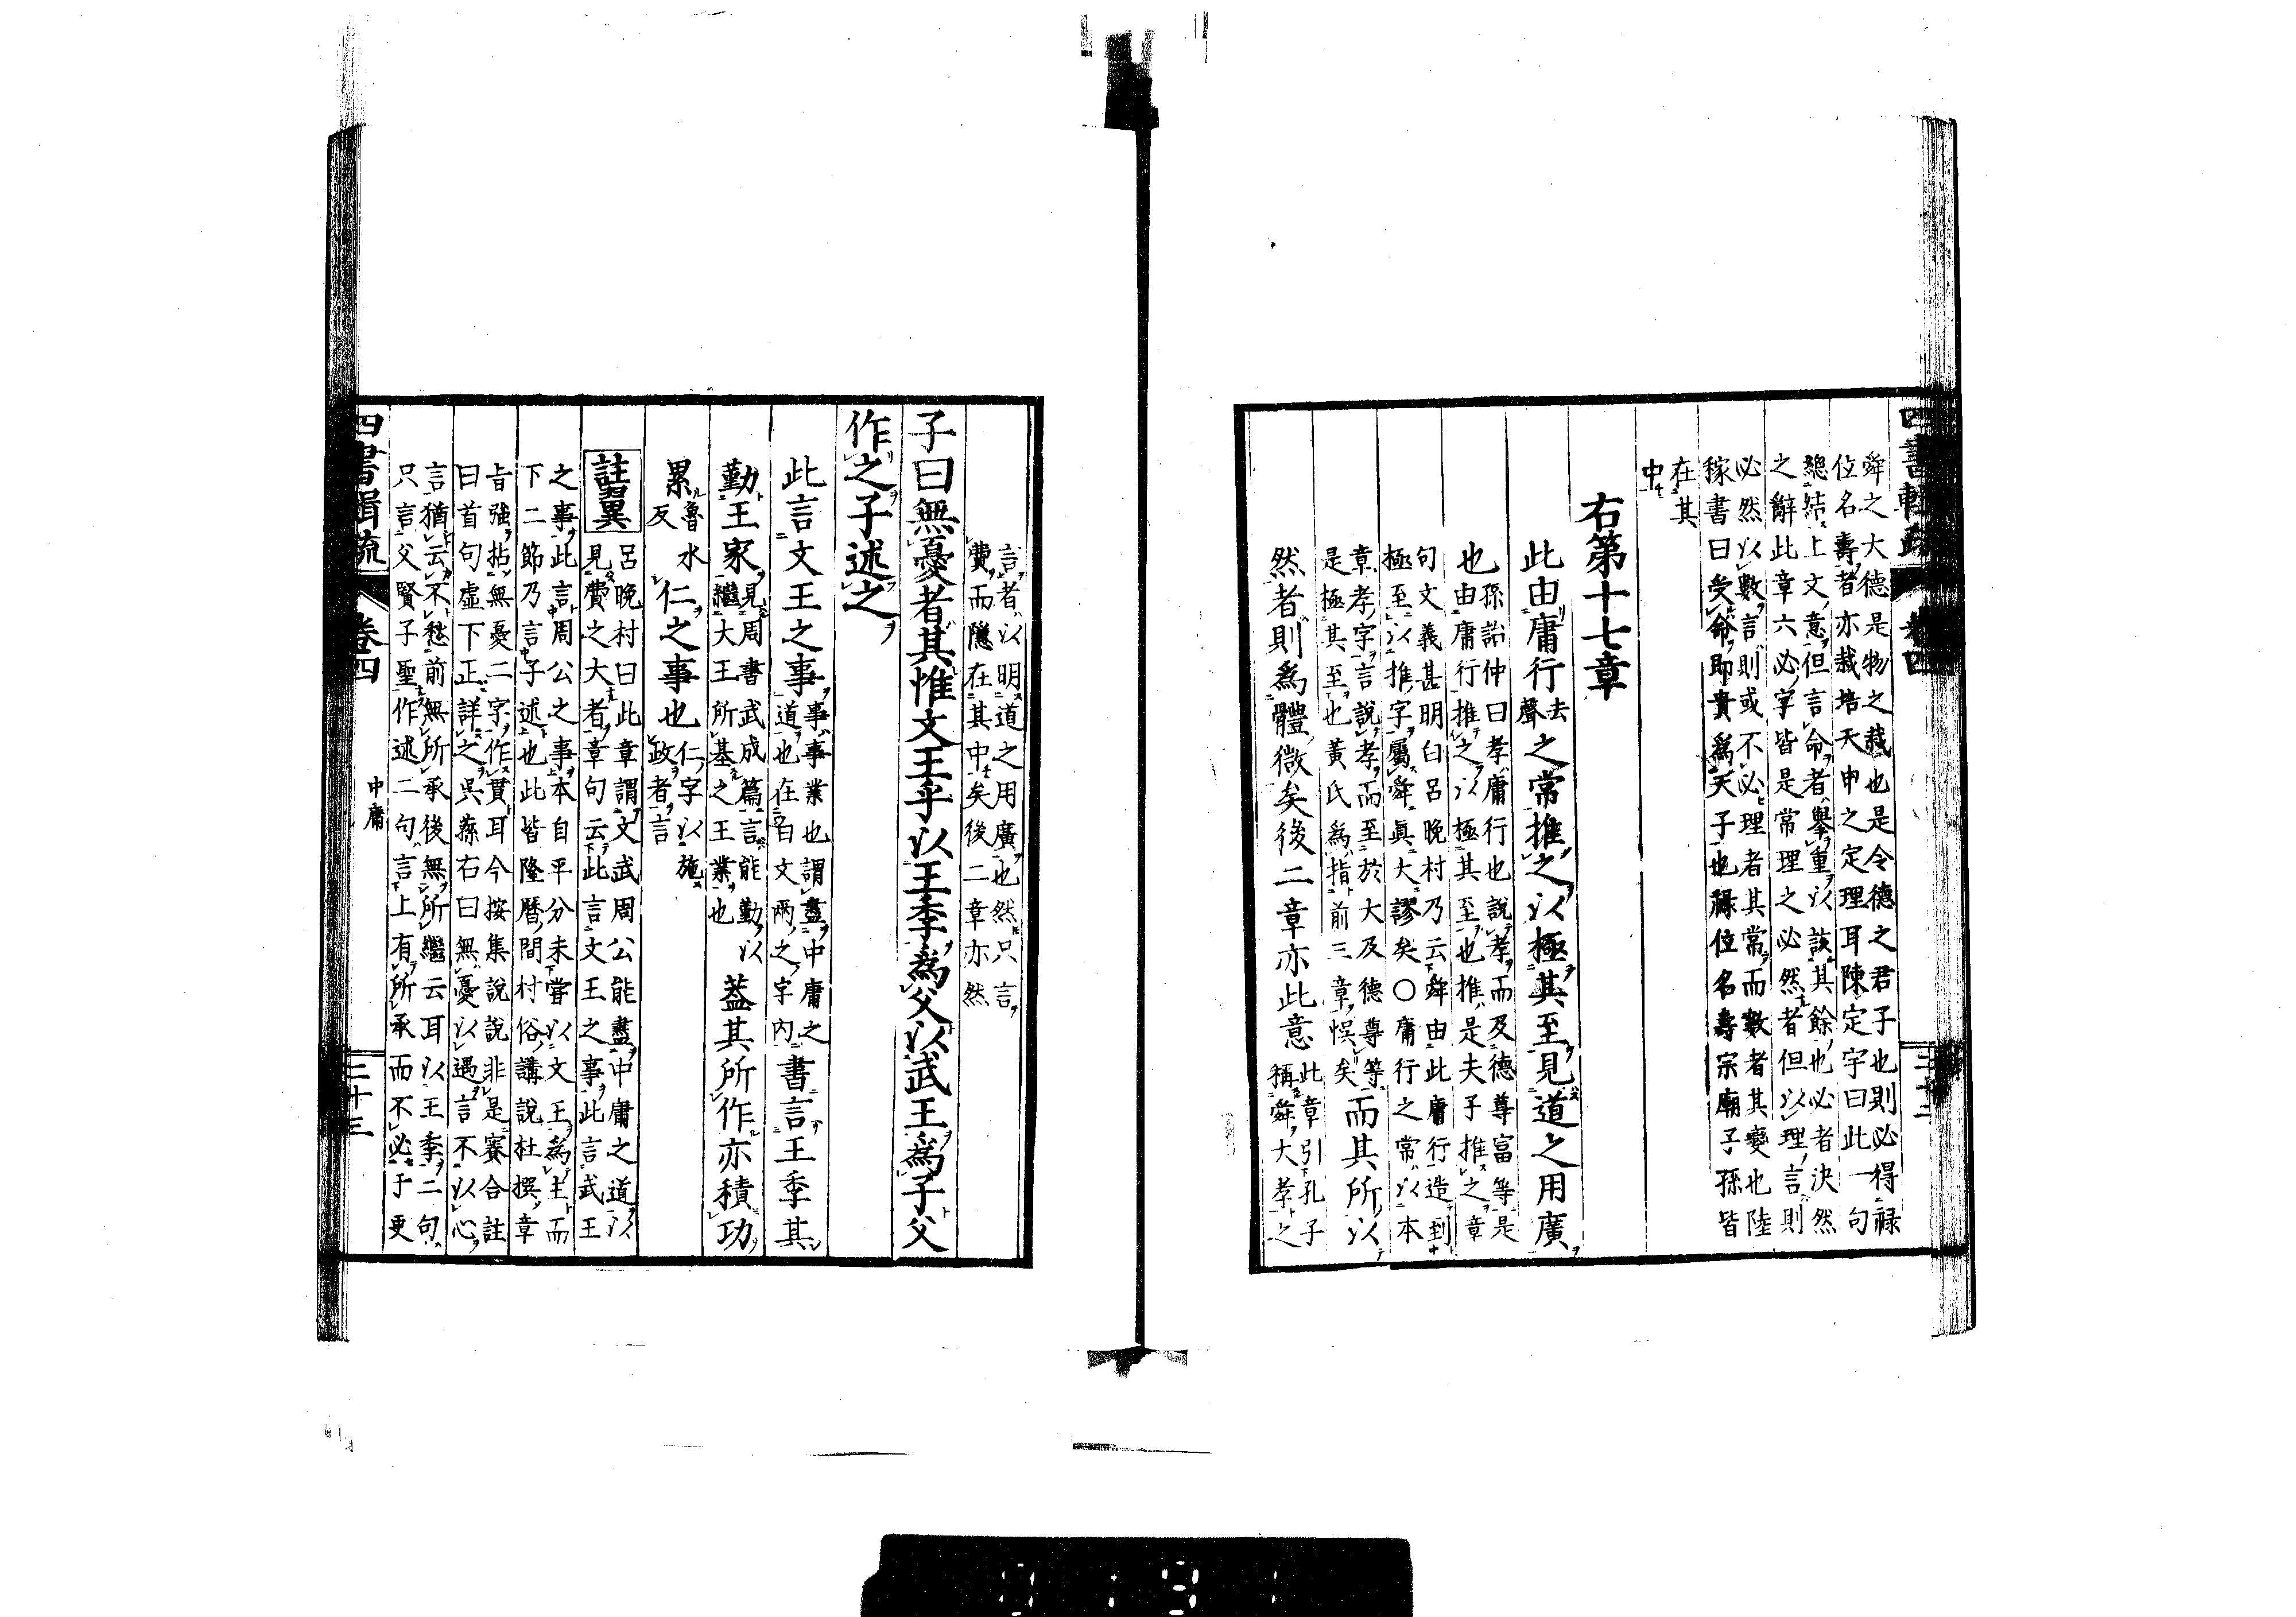 四書輯疏 卷四 二十二
舜之大德是物之栽也是令德之君子也則必得祿
位名壽者亦栽培天申之定理耳陳定宇曰此一句
總結上文意但言命者舉重以該其餘也必者決然
之辭此章六必字皆是常理之必然者但以理言則
必然以數言則或不必理者其常而數者其變也陸
稼書曰受命即貴爲天子也祿位名壽宗廟子孫皆
在其
中
右第十七章
此由庸行去聲之常推之以極其至見道之用廣
也孫詒仲曰孝庸行也說孝而及德尊富等是
由庸行推之以極其至也推是夫子推之章
句文義甚明白呂晚村乃云舜由此庸行造到
極至以推字屬舜眞大謬矣〇庸行之常以本
章孝字言說孝而至於大及德尊等
是極其至也黃氏爲指前三章悞矣而其所以
然者則爲體微矣後二章亦此意此章引孔子
稱舜大孝之
言者以明道之用廣也然只言
費而隱在其中矣後二章亦然
子曰無憂者其惟文王乎以王季爲父以武王爲子父
作之子述之
此言文王之事事事業也謂盡中庸之
道也在白文兩之字內書言王季其
勤王家見周書武成篇言能勤以
繼大王所基之王業也蓋其所作亦積功
累魯水
反仁之事也仁字以施
政者言
註翼 呂晚村曰此章謂文武周公能盡中庸之道以
見費之大者章句云此言文王之事此言武王
之事此言周公之事本自平分未嘗以文王爲主而
下二節乃言子述也此皆隆曆間村俗講說杜撰章
旨強拈無憂二字作貫耳今按集說說非是賽合註
曰首句虛下正詳之吳蓀右曰無憂以遇言不以心
言猶云不愁前無所承後無所繼云耳以王季二句
只言父賢子聖作述二句言上有所承而不必于更
四書輯疏 卷四 中庸 二十三